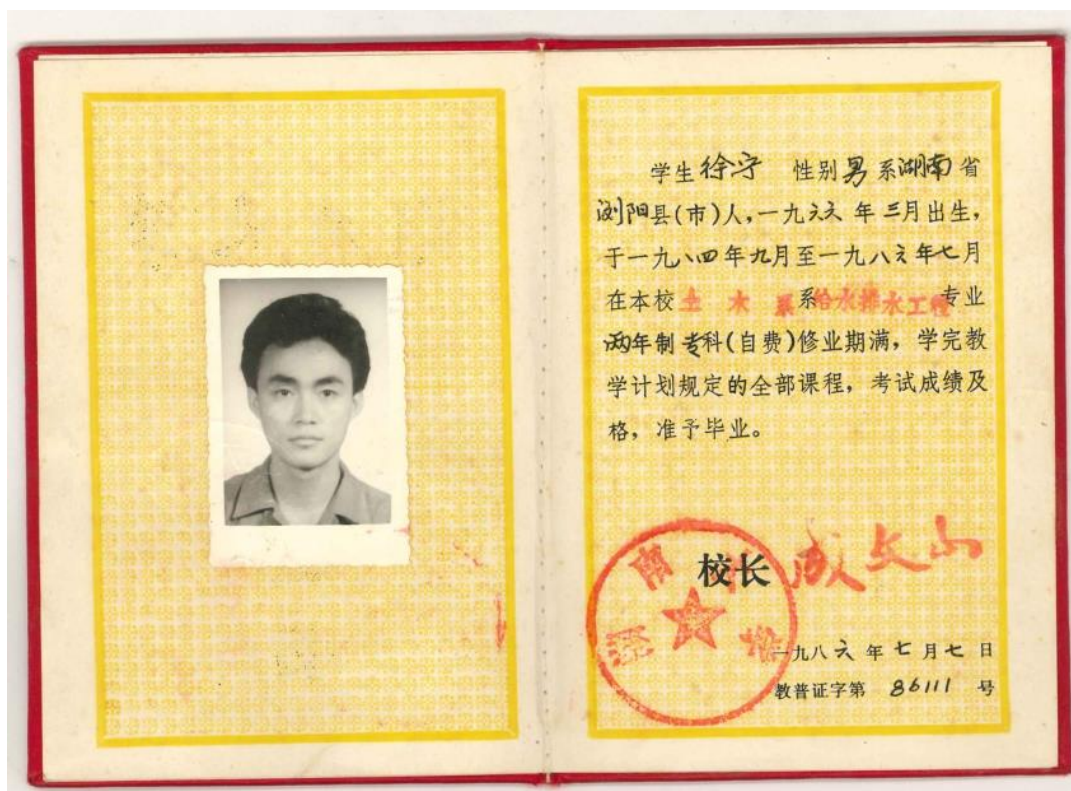 学生徐宁 性别男系湖南省
浏阳县(市)人,一九六六年三月出生,
于一九八四年九月至一九八六年七月
在本校土木系系给水排水工程专业
两年制专科(自费)修业期满,学完教
学计划规定的全部课程,考试成绩及
格,准予毕业。
湖南大学
校长 成文山
一九八六年七月七日
教普证字第 86111 号